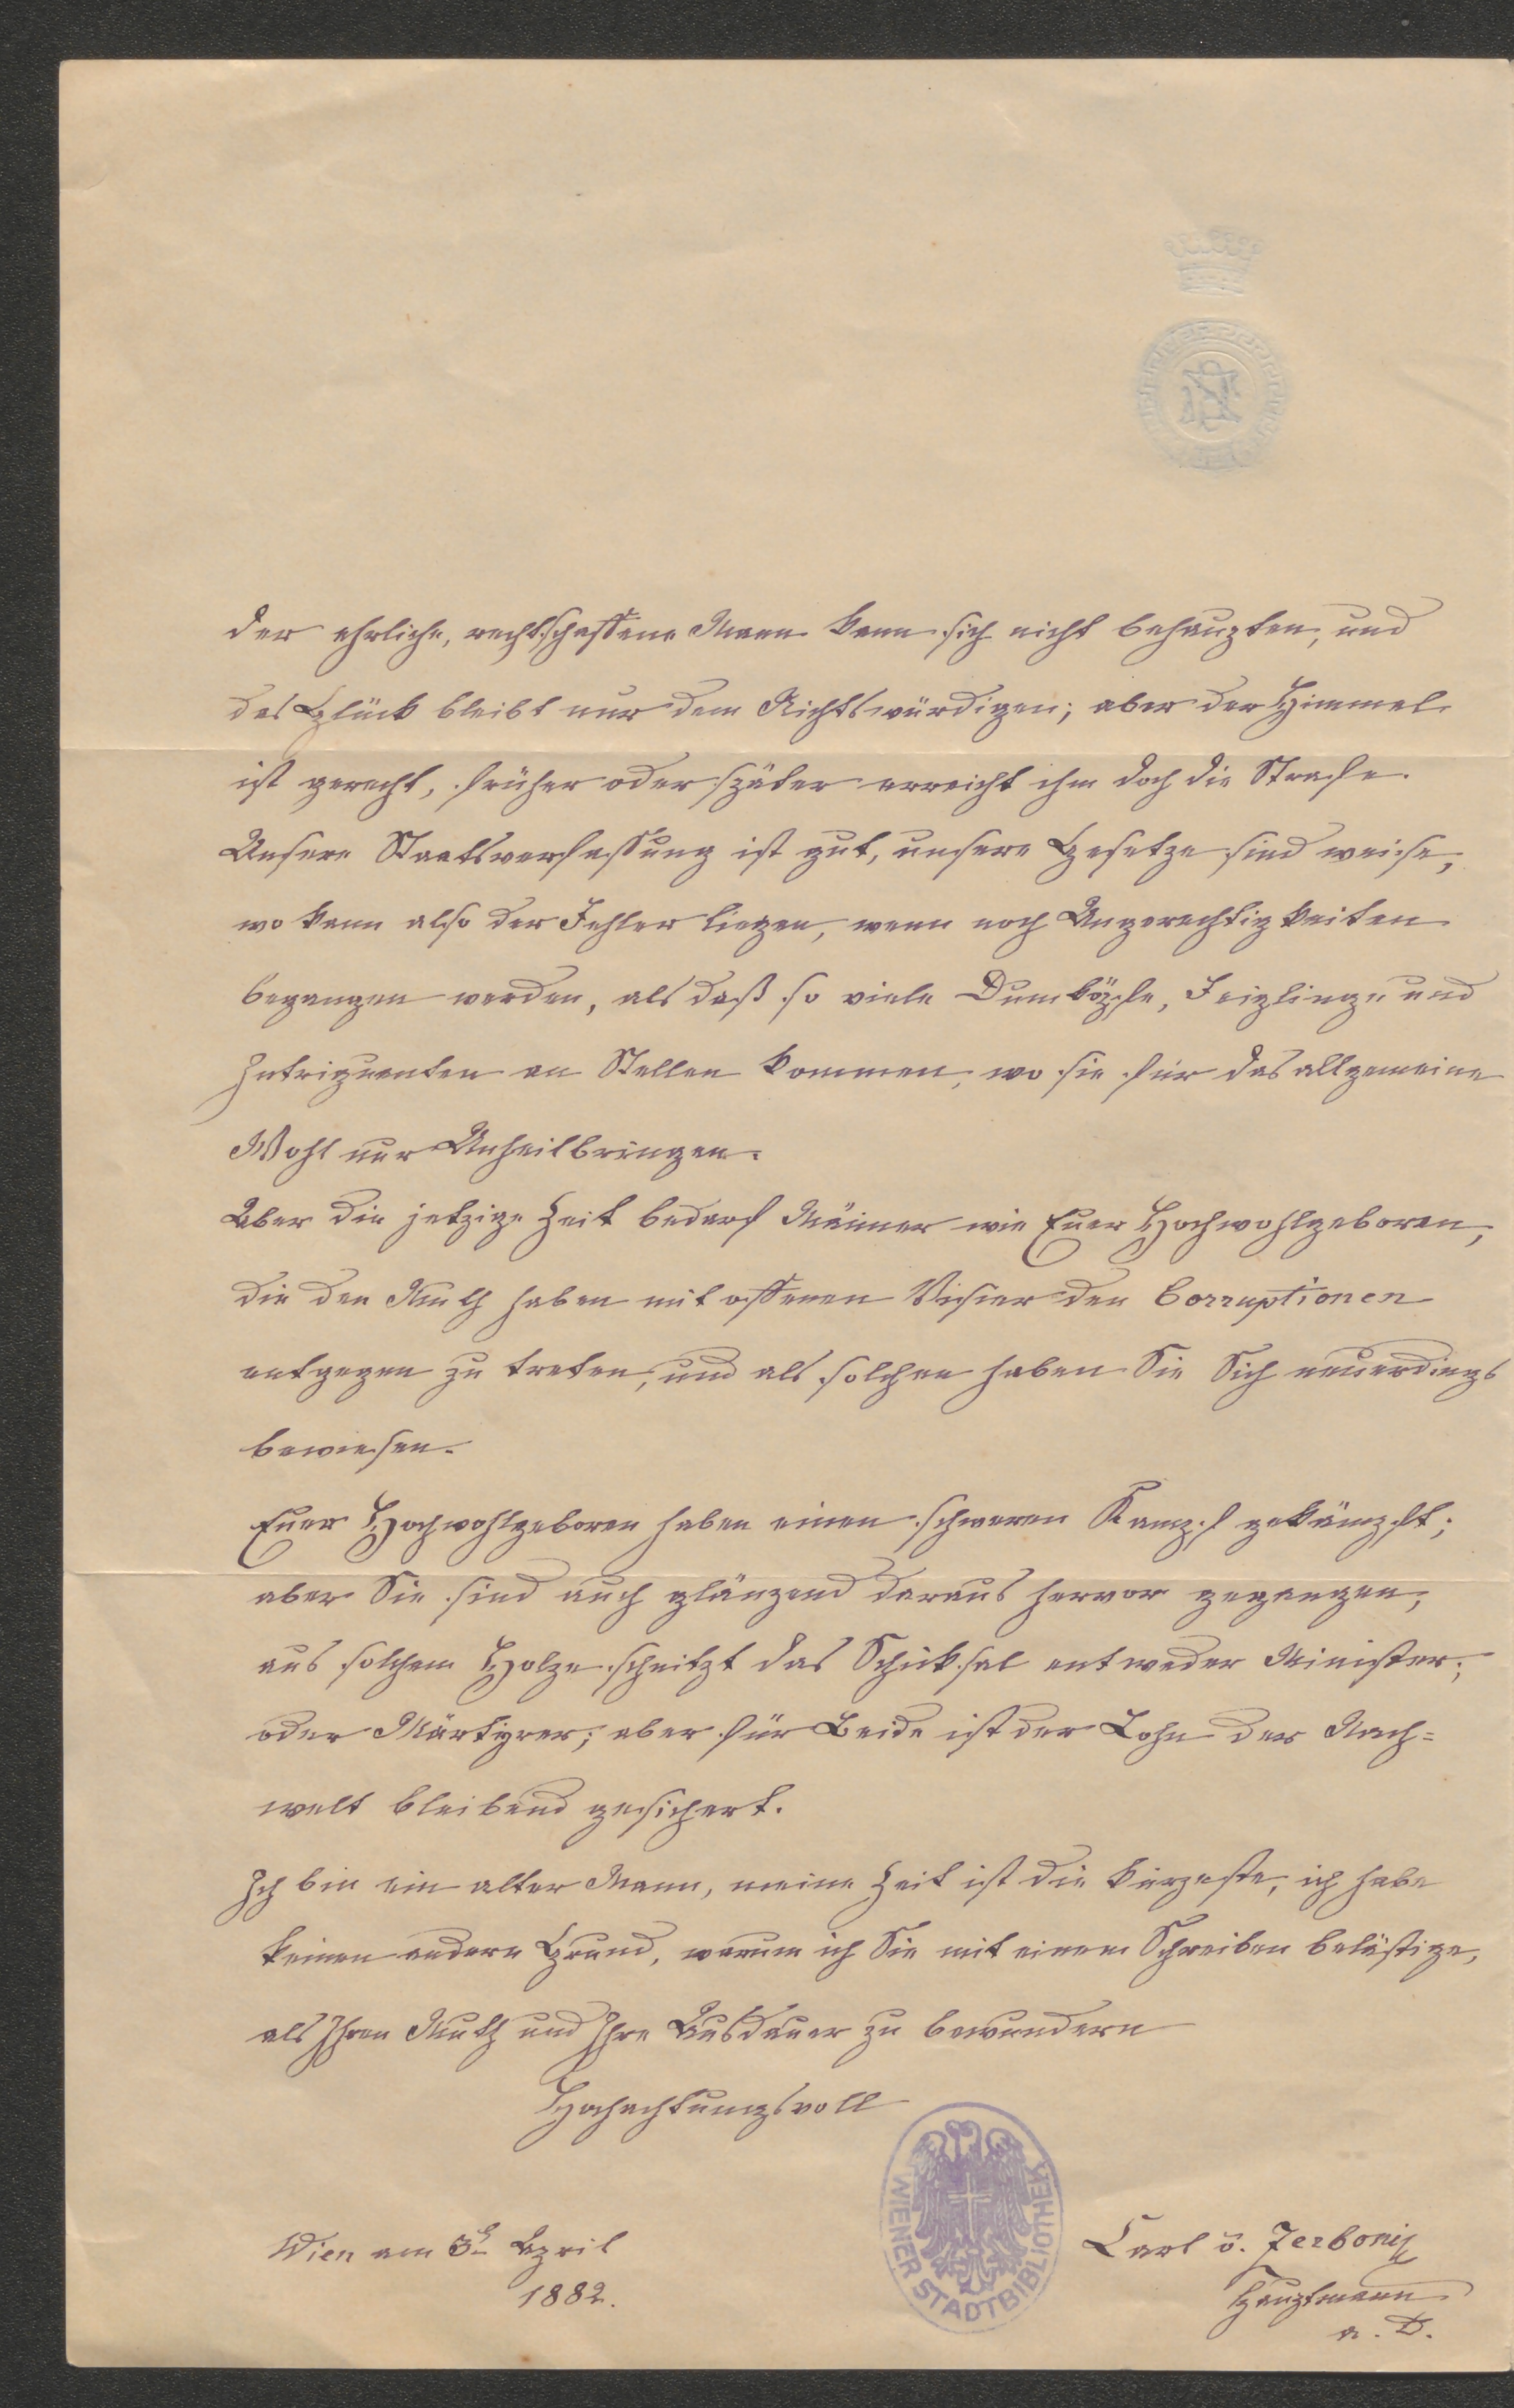 der ehrliche, rechtschaffene Mann kann sich nicht behaupten, und
das Glück bleibt nur dem Nichtswürdigen; aber der Himmel
ist gerecht, früher oder später erreicht ihm doch die Strafe.
Unsere Staatsverfassung ist gut, unsere Gesetze sind weise,
wo kann also der Fehler liegen, wenn noch Ungerechtigkeiten
begangen werden, als daß so viele Dumköpfe, Feiglinge und
Intriguenten an Stellen kommen, wo sie für das allgemeine
Wohl nur Unheil bringen.
Aber die jetzige Zeit bedarf Männer wie Euer Hochwohlgeboren,
die den Muth haben mit offenen Visier den Corruptionen
entgegen zu treten, und als solchen haben Sie Sich neuerdings
bewiesen.
Euer Hochwohlgeboren haben einen schweren Kampf gekämpft;
aber Sie sind auch glänzend daraus hervor gegangen,
aus solchem Holze schnitzt das Schiksal entweder Minister,
oder Märtyrer; aber für Beide ist der Lohn der Nach=
welt bleibend gesichert.
Ich bin ein alter Mann, meine Zeit ist die kürzeste, ich habe
keinen andern Grund, warum ich Sie mit einem Schreiben belästige,
als Ihren Muth und Ihre Ausdauer zu bewundern
Hochachtungsvoll
Wien am 3t April
1882.
WIENER STADTBIBLIOTHEK
Carl v. Zerboni
Hauptmann
a. D.